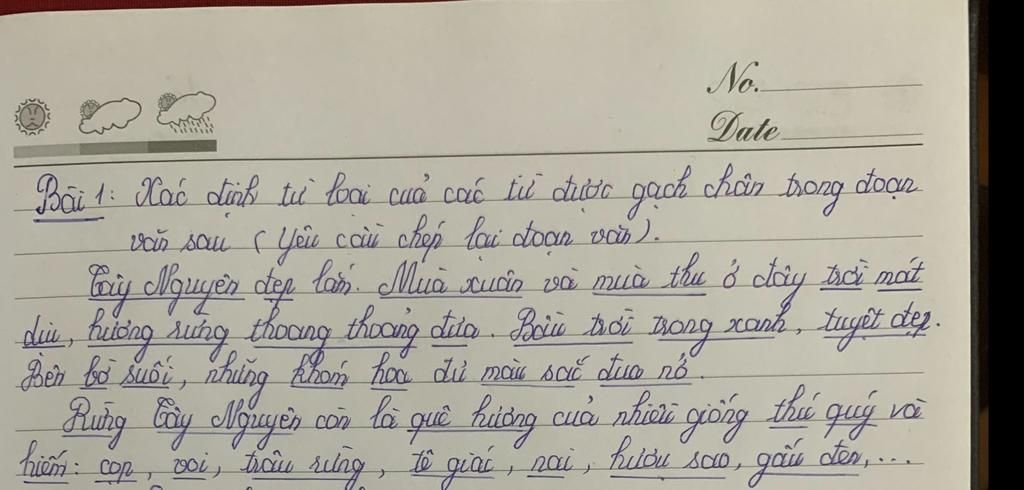 No.
Date
Bài 1: Xác định từ loại của các từ được gạch chân trong đoạn
văn sau (Yêu cầu chép lại đoạn văn).
Tây Nguyên đẹp lắm. Mùa xuân và mùa thu ở đây trời mát
dịu, hương rừng thoang thoảng đưa. Bầu trời trong xanh, tuyệt đẹp.
Bên bờ suối, những khóm hoa đủ màu sắc đua nở.
Rừng Tây Nguyên còn là quê hương của nhiều giống thú quý và
hiếm: cọp, voi, trâu rừng, tê giác, nai, hươu sao, gấu đen,...